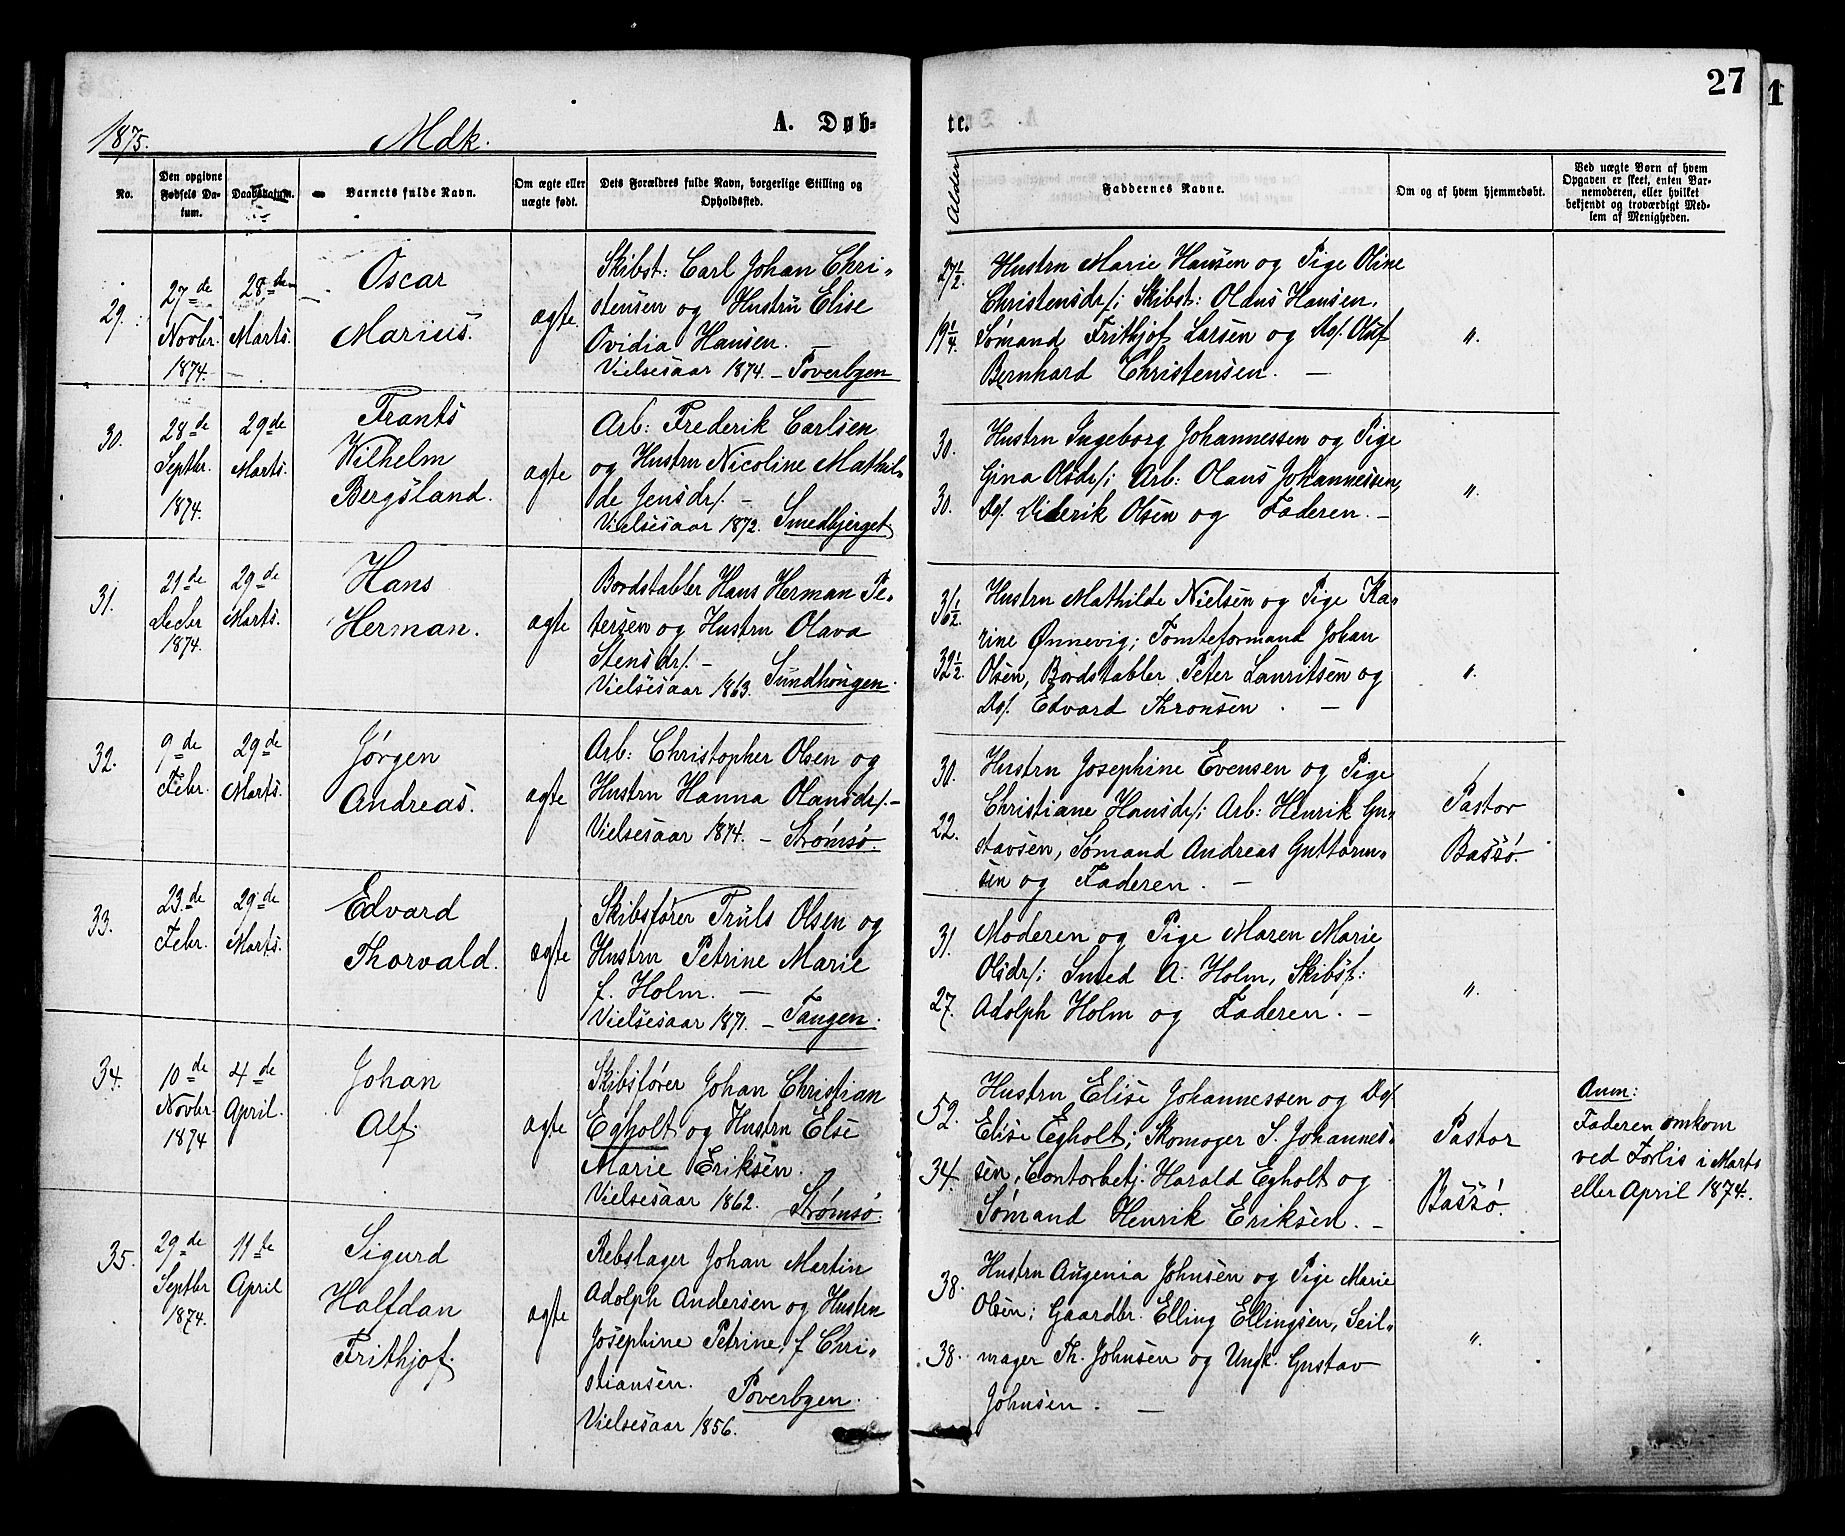 27
1
1875.
Mdk.
A. Døb-
te.
No.
Den opgivne
Fødsels Da-
tum.
Daabsdatum.
Barnets fulde Navn.
Om ægte eller
uægte født.
Dets Forældres fulde Navn, borgerlige Stilling og
Opholdssted.
Alder
Faddernes Navne.
Om og af hvem hjemmedøbt.
Ved uægte Børn af hvem
Opgaven er skeet, enten Bar-
nemoderen, eller hvilket
bekjendt og troværdigt Med-
lem af Menigheden.
29.
27de
Novbr.
1874.
28de
Marts.
Oscar
Marius.
ægte
Skibst: Carl Johan Chri-
stensen og Hustru Elise
Ovidia Hansen. —
Vielsesaar 1874. – Toverbyen
27 1/2
19 1/4
Hustru Marie Hansen og Pige Oline
Christensdr/; Skibst: Olaus Hansen,
Sømand Frithjof Larsen og Ug/. Oluf
Bernhard Christensen. —
"
30.
28de
Septbr.
1874.
29de
Marts.
Frants
Wilhelm
Bergsland.
ægte
Arb: Frederik Carlsen
og Hustru Nicoline Mathil-
de Jensdr/. –
Vielsesaar 1872. Smedbjerget
30.
30.
Hustru Ingeborg Johannessen og Pige
Gina Olsdr/; Arb: Olaus Johannessen,
Ug/. Diderik Olsen og Faderen. –
"
31.
21de
Decbr
1874.
29de
Marts.
Hans
Herman.
ægte
Bordstabler Hans Herman Pe-
tersen og Hustru Olava
Stensdr/. –
Vielsesaar 1863. Sundhaugen.
31 1/2
32 1/2
Hustru Mathilde Nielsen og Pige Ka-
rine Ønnevig; Tomteformand Johan
Olsen, Bordstabler Peter Lauritsen og
Ug/. Edvard Thronsen. —
"
32.
9de
Febr.
29de
Marts.
Jørgen
Andreas.
ægte
Arb: Christopher Olsen og
Hustru Hanna Olausdr/. –
Vielsesaar 1874. – Strømsø.
30.
22.
Hustru Josephine Evensen og Pige
Christiane Hansdr/; Arb: Henrik Gu-
stavsen, Sømand Andreas Guttorm-
sen og Faderen. —
Pastor
Bassø.
33.
23de
Febr.
29de
Marts.
Edvard
Thorvald.
ægte
Skibsfører Truls Olsen og
Hustru Petrine Marie
f. Holm. —
Vielsesaar 1871. – Tangen.
31.
27.
Moderen og Pige Maren Marie
Olsdr/; Smed A. Holm, Skibst:
Adolph Holm og Faderen. –
"
34.
10de
Novbr.
1874
4de
April.
Johan
Alf.
ægte
Skibsfører Johan Christian
Egholt og Hustru Else
Marie Eriksen.
Vielsesaar 1862. Strømsø.
52.
34.
Hustru Elise Johannessen og Ug/.
Elise Egholt; Skomager S. Johannes-
sen, Contorbetj. Harald Egholt og
Sømand Henrik Eriksen. –
Pastor
Bassø.
Anm:
Faderen omkom
ved Forlis i Marts
eller April 1874.
35.
29de
Septbr
1874.
11te
April
Sigurd
Halfdan
Frithjof.
ægte
Rebslager Johan Martin
Adolph Andersen og Hustru
Josephine Petrine f. Chri-
stiansen.
Toverbyen.
Vielsesaar 1856.
38.
38.
Hustru Augenia Johnsen og Pige Marie
Olsen; Gaardbr. Elling Ellingsen, Seil-
mager Th. Johnsen og Ungk. Gustav
Johnsen. —
"